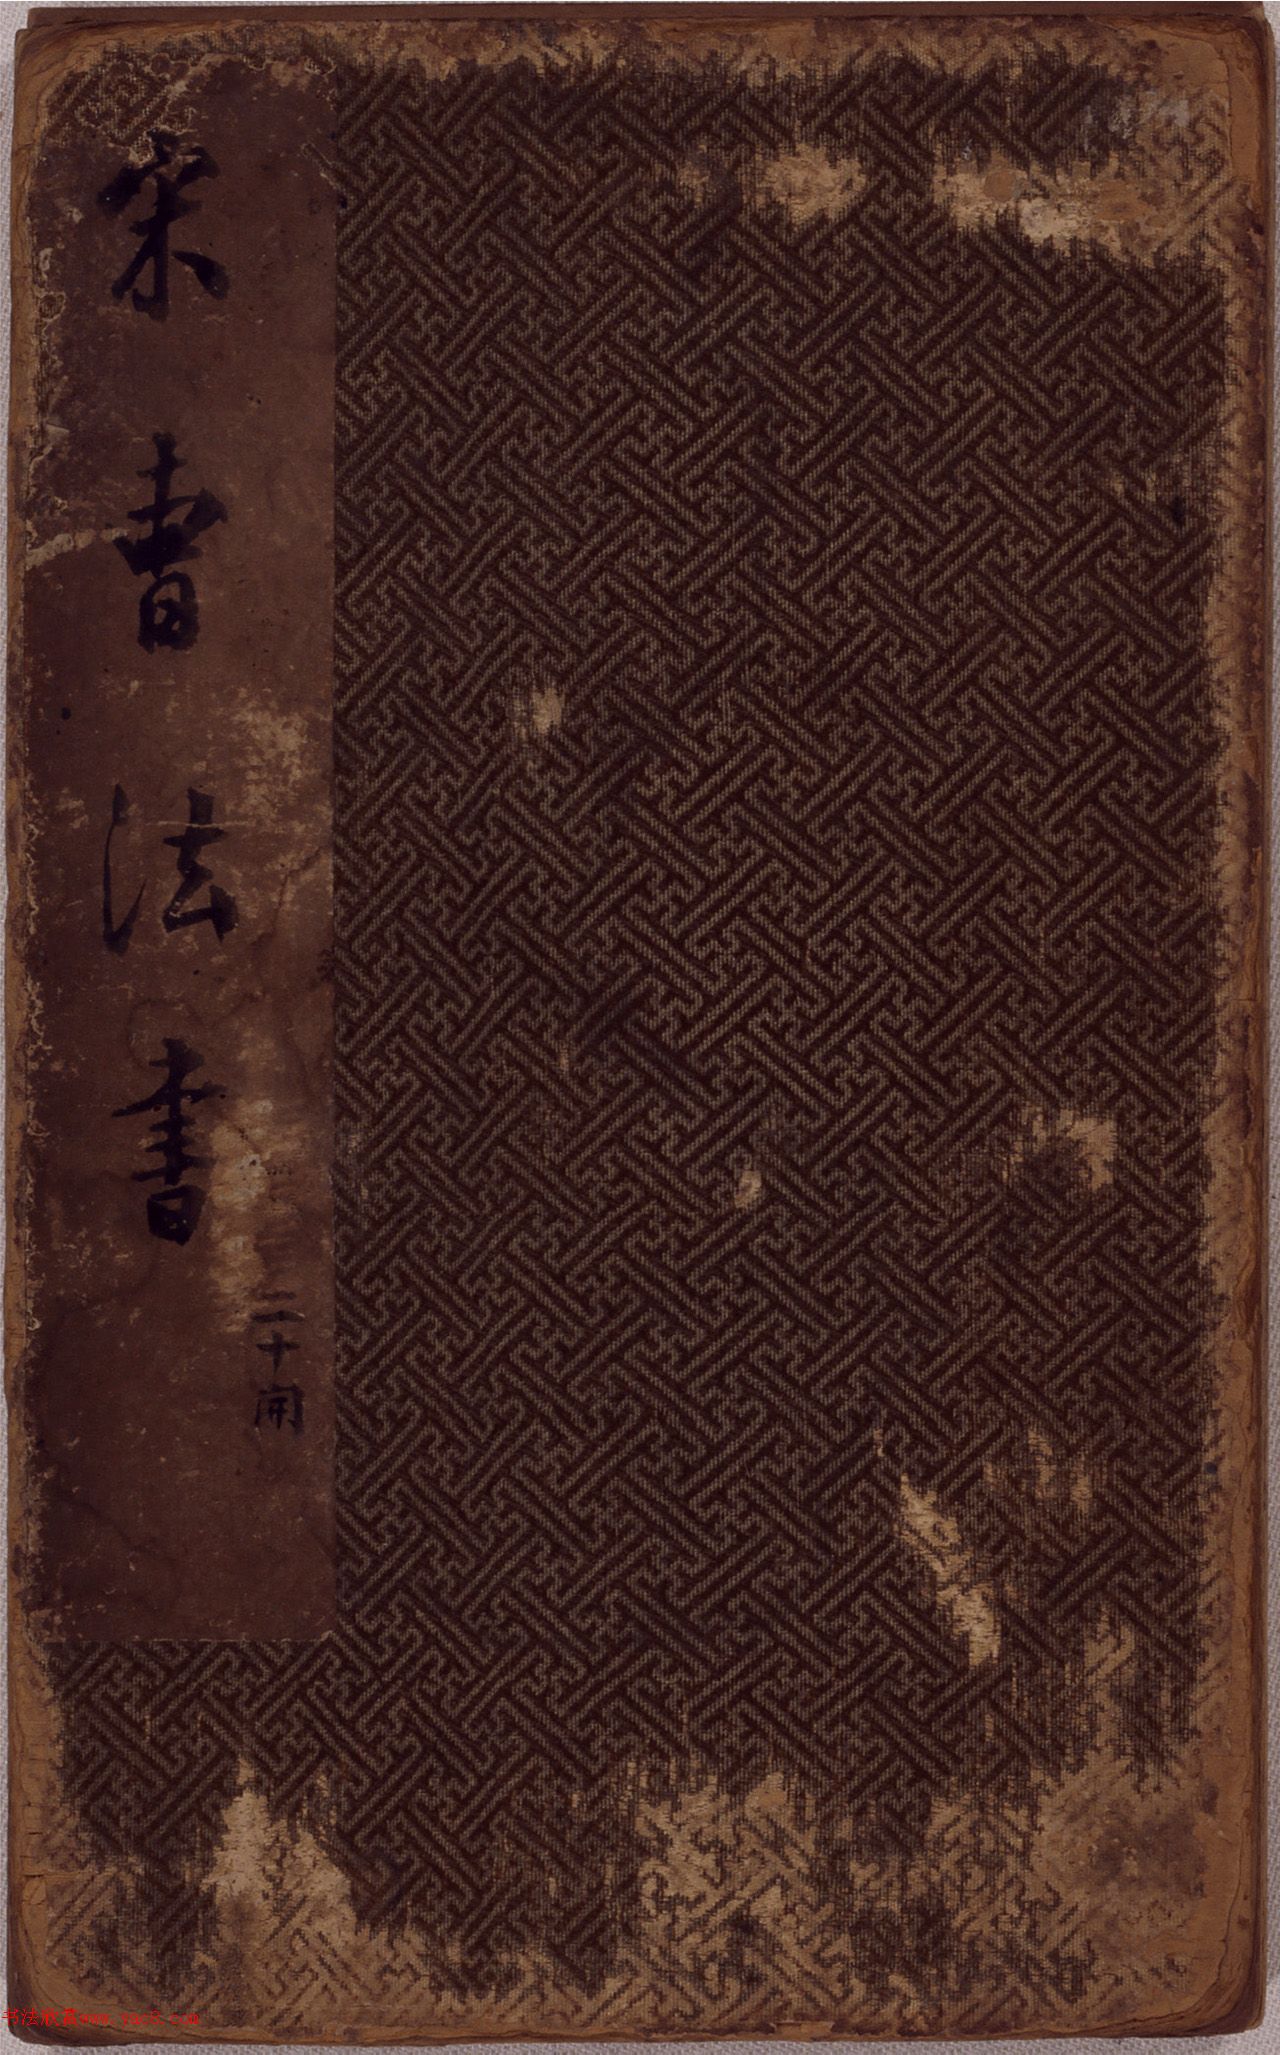 宋曹法書
二十開
书法欣赏www.yac8.com